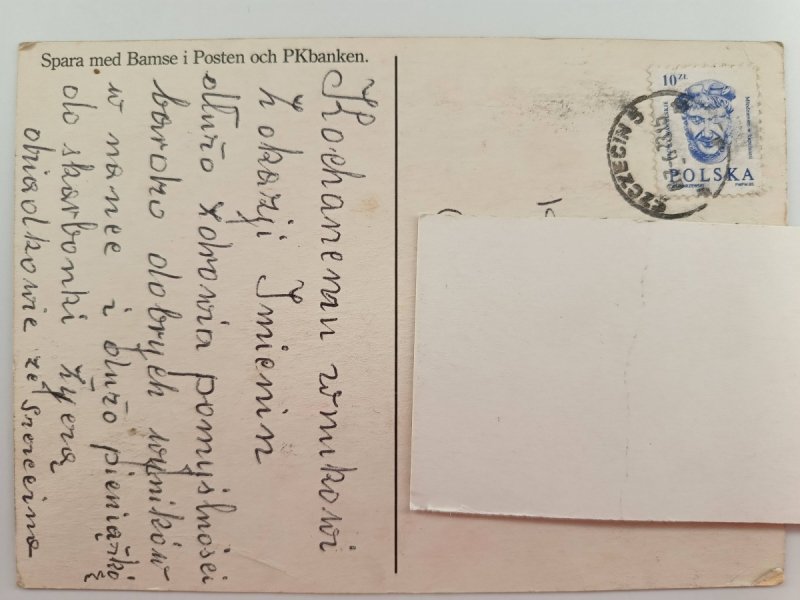 Spara med Bamse i Posten och PKbanken.
Kochanemu wnukowi
z okazji Imienin
dużo zdrowia pomyślności
bardzo dobrych wyników
w nauce i dużo pieniążków
do skarbonki życzą
dziadkowie ze Szczecina
10 ZŁ
POLSKA
SZCZECIN 5